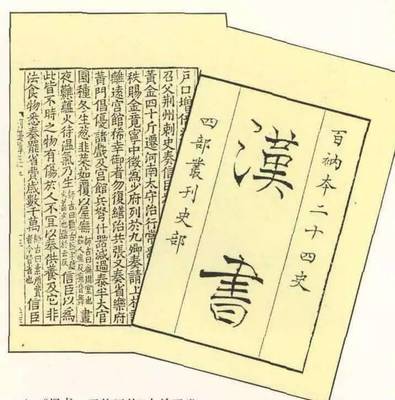 百衲本二十四史
漢書
四部叢刊史部
戶口增倍
召父荆州刺史奏信臣
黃金四十斤遷河南太守治行常
秩賜金竟寧中徵爲少府列於九卿奏請上
離遠宮館稀幸御者勿復繕治共張又奏省樂府
黃門倡優諸戲及宮館兵弩什器減過泰半太官
園種冬生葱韭菜茹覆以屋廡 晝
夜㸐蘊火待溫氣乃生 信臣以爲
此皆不時之物有傷於人不宜以奉供養及它非
法食物悉奏罷省費歲數千萬 信臣